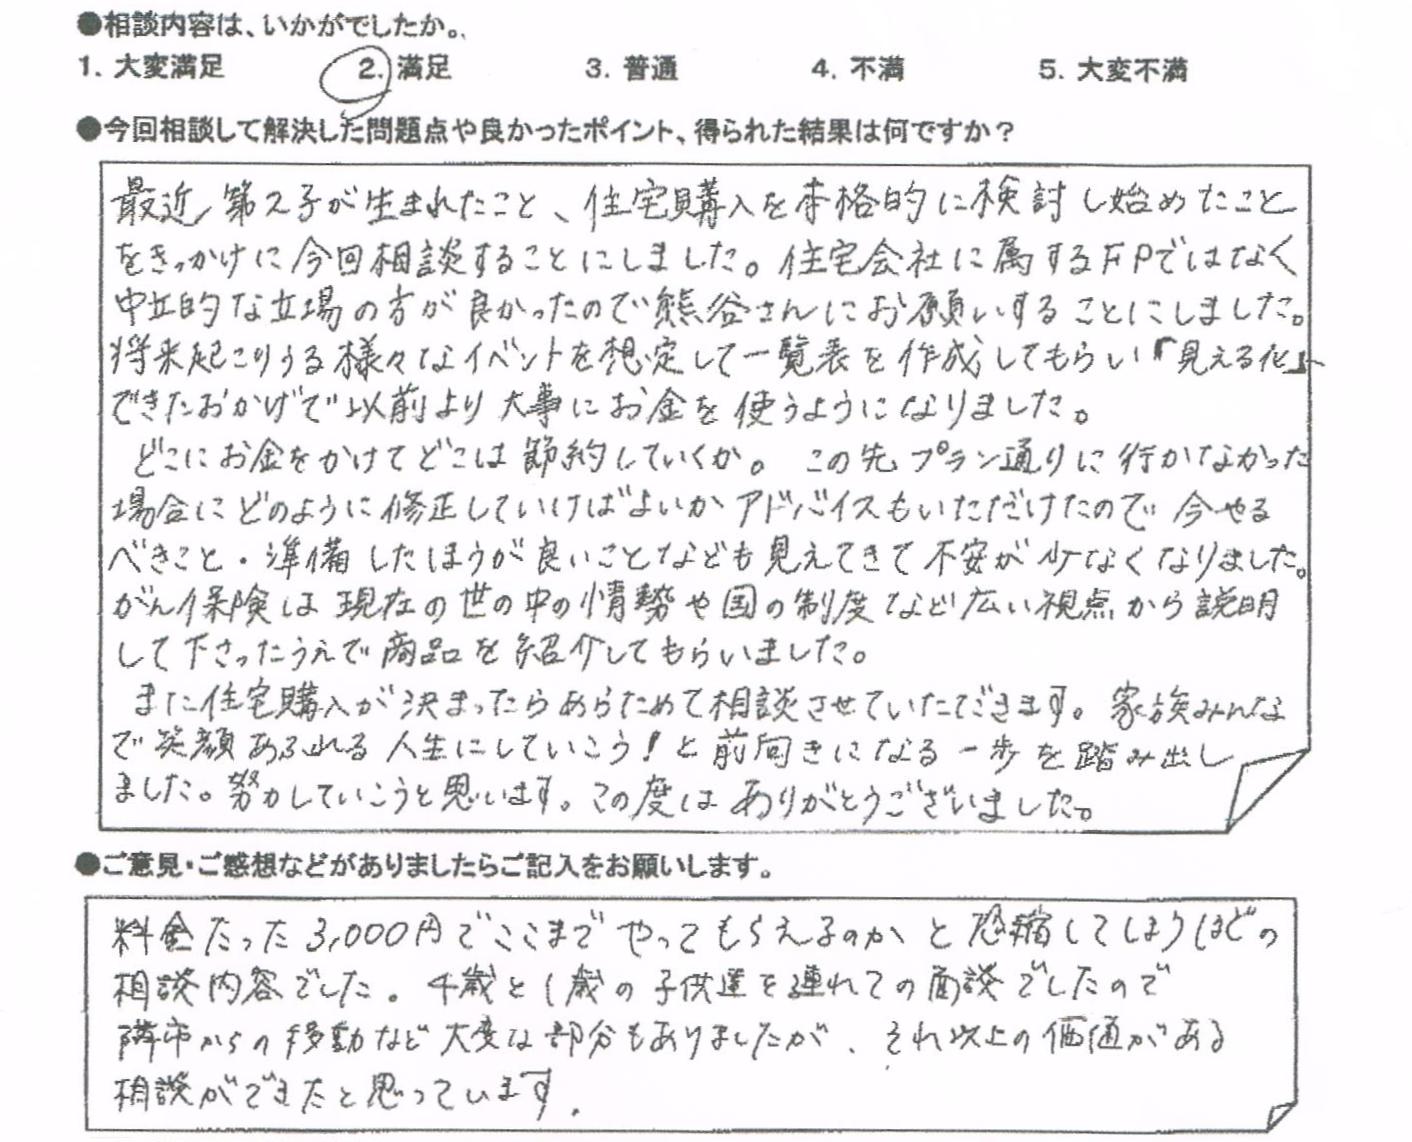 ●相談内容は、いかがでしたか。
1. 大変満足 2. 満足 3. 普通 4. 不満 5. 大変不満
●今回相談して解決した問題点や良かったポイント、得られた結果は何ですか？
最近、第2子が生まれたこと、住宅購入を本格的に検討し始めたこと
をきっかけに今回相談することにしました。住宅会社に属するFPではなく
中立的な立場の方が良かったので熊谷さんにお願いすることにしました。
将来起こりうる様々なイベントを想定して一覧表を作成してもらい「見える化」
できたおかげで以前より大事にお金を使うようになりました。
どこにお金をかけてどこは節約していくか。この先プラン通りに行かなかった
場合にどのように修正していけばよいかアドバイスもいただけたので今やる
べきこと・準備したほうが良いことなども見えてきて不安が少なくなりました。
がん保険は現在の世の中の情勢や国の制度など広い視点から説明
して下さったうえで商品を紹介してもらいました。
また住宅購入が決まったらあらためて相談させていただきます。家族みんな
で笑顔あふれる人生にしていこう！と前向きになる一歩を踏み出し
ました。努力していこうと思います。この度はありがとうございました。
●ご意見・ご感想などがありましたらご記入をお願いします。
料金たった3,000円でここまでやってもらえるのかと恐縮してしまうほどの
相談内容でした。4歳と1歳の子供達を連れての面談でしたので
隣市からの移動など大変な部分もありましたが、それ以上の価値がある
相談ができたと思っています。